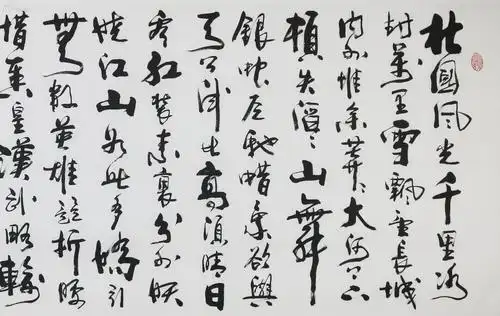 北國风光千里冰
封萬里雪飄望長城
内外惟余莽々大河上下
頓失滔々山舞
銀蛇原馳蜡象欲與
天公試比高須晴日
看红裝素裹分外妖
嬈江山如此多嬌引
無數英雄競折腰
惜秦皇漢武略輸